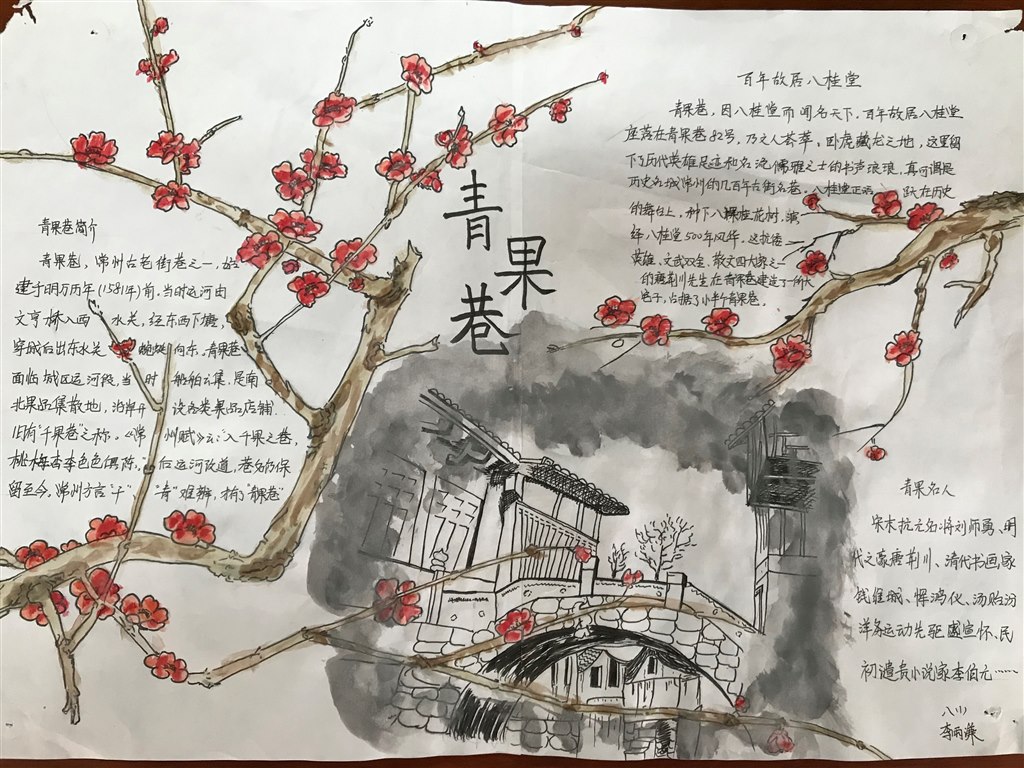 青果巷
青果巷简介
青果巷，常州古老街巷之一，始
建于明万历年(1581年)前，当时运河由
文亨桥入西水关，经东西下塘，
穿城后出东水关蜿蜒向东，青果巷
面临城区运河段，当时船舶云集，是南
北果品集散地，沿岸开设各类果品店铺
旧有"千果巷"之称。《常州赋》云:"入千果之巷，
桃梅杏李色色俱陈。"后运河改道，巷名仍保
留至今。常州方言"千"、"青"难辨，才有"青果巷"
百年故居八桂堂
青果巷，因八桂堂而闻名天下，百年故居八桂堂
座落在青果巷82号，乃文人荟萃、卧虎藏龙之地，这里留
下了历代英雄足迹和名流儒雅之士的书声琅琅，真可谓是
历史名城常州的几百年古街名巷。八桂堂正活跃在历史
的舞台上，种下八棵桂花树，演
绎八桂堂500年风华。这抗倭
英雄、文武双全、散文四大家之一
的唐荆川先生在青果巷建造了一所大
宅子，占据了小半个青果巷。
青果名人
宋末抗元名将刘师勇、明
代文豪唐荆川、清代书画家
钱维城、恽鸿仪、汤贻汾
洋务运动先驱盛宣怀、民
初谴责小说家李伯元……
八(1)